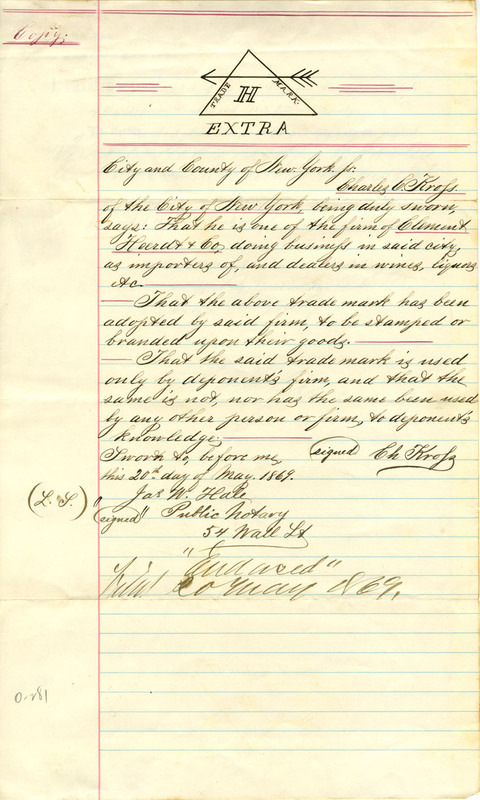 Copy;
TRADE MARK.
H
EXTRA
City and County of New York, ss.
Charles C. Kross
of the City of New York, being duly sworn,
says: That he is one of the firm of Clement
Heerdt & Co, doing business in said city,
as importers of, and dealers in wines, liquors
etc.
That the above trade mark has been
adopted by said firm, to be stamped or
branded upon their goods.
That the said trade mark is used
only by deponent's firm, and that the
same is not, nor has the same been used
by any other person or firm, to deponent's
knowledge,
Sworn to, before me, (signed) Ch Kross
this 20th day of May. 1869.
(L. S.) (signed) " Jas W. Hale
Public Notary
54 Wall St
"Endorsed"
Filed 20 May 1869.
0-281